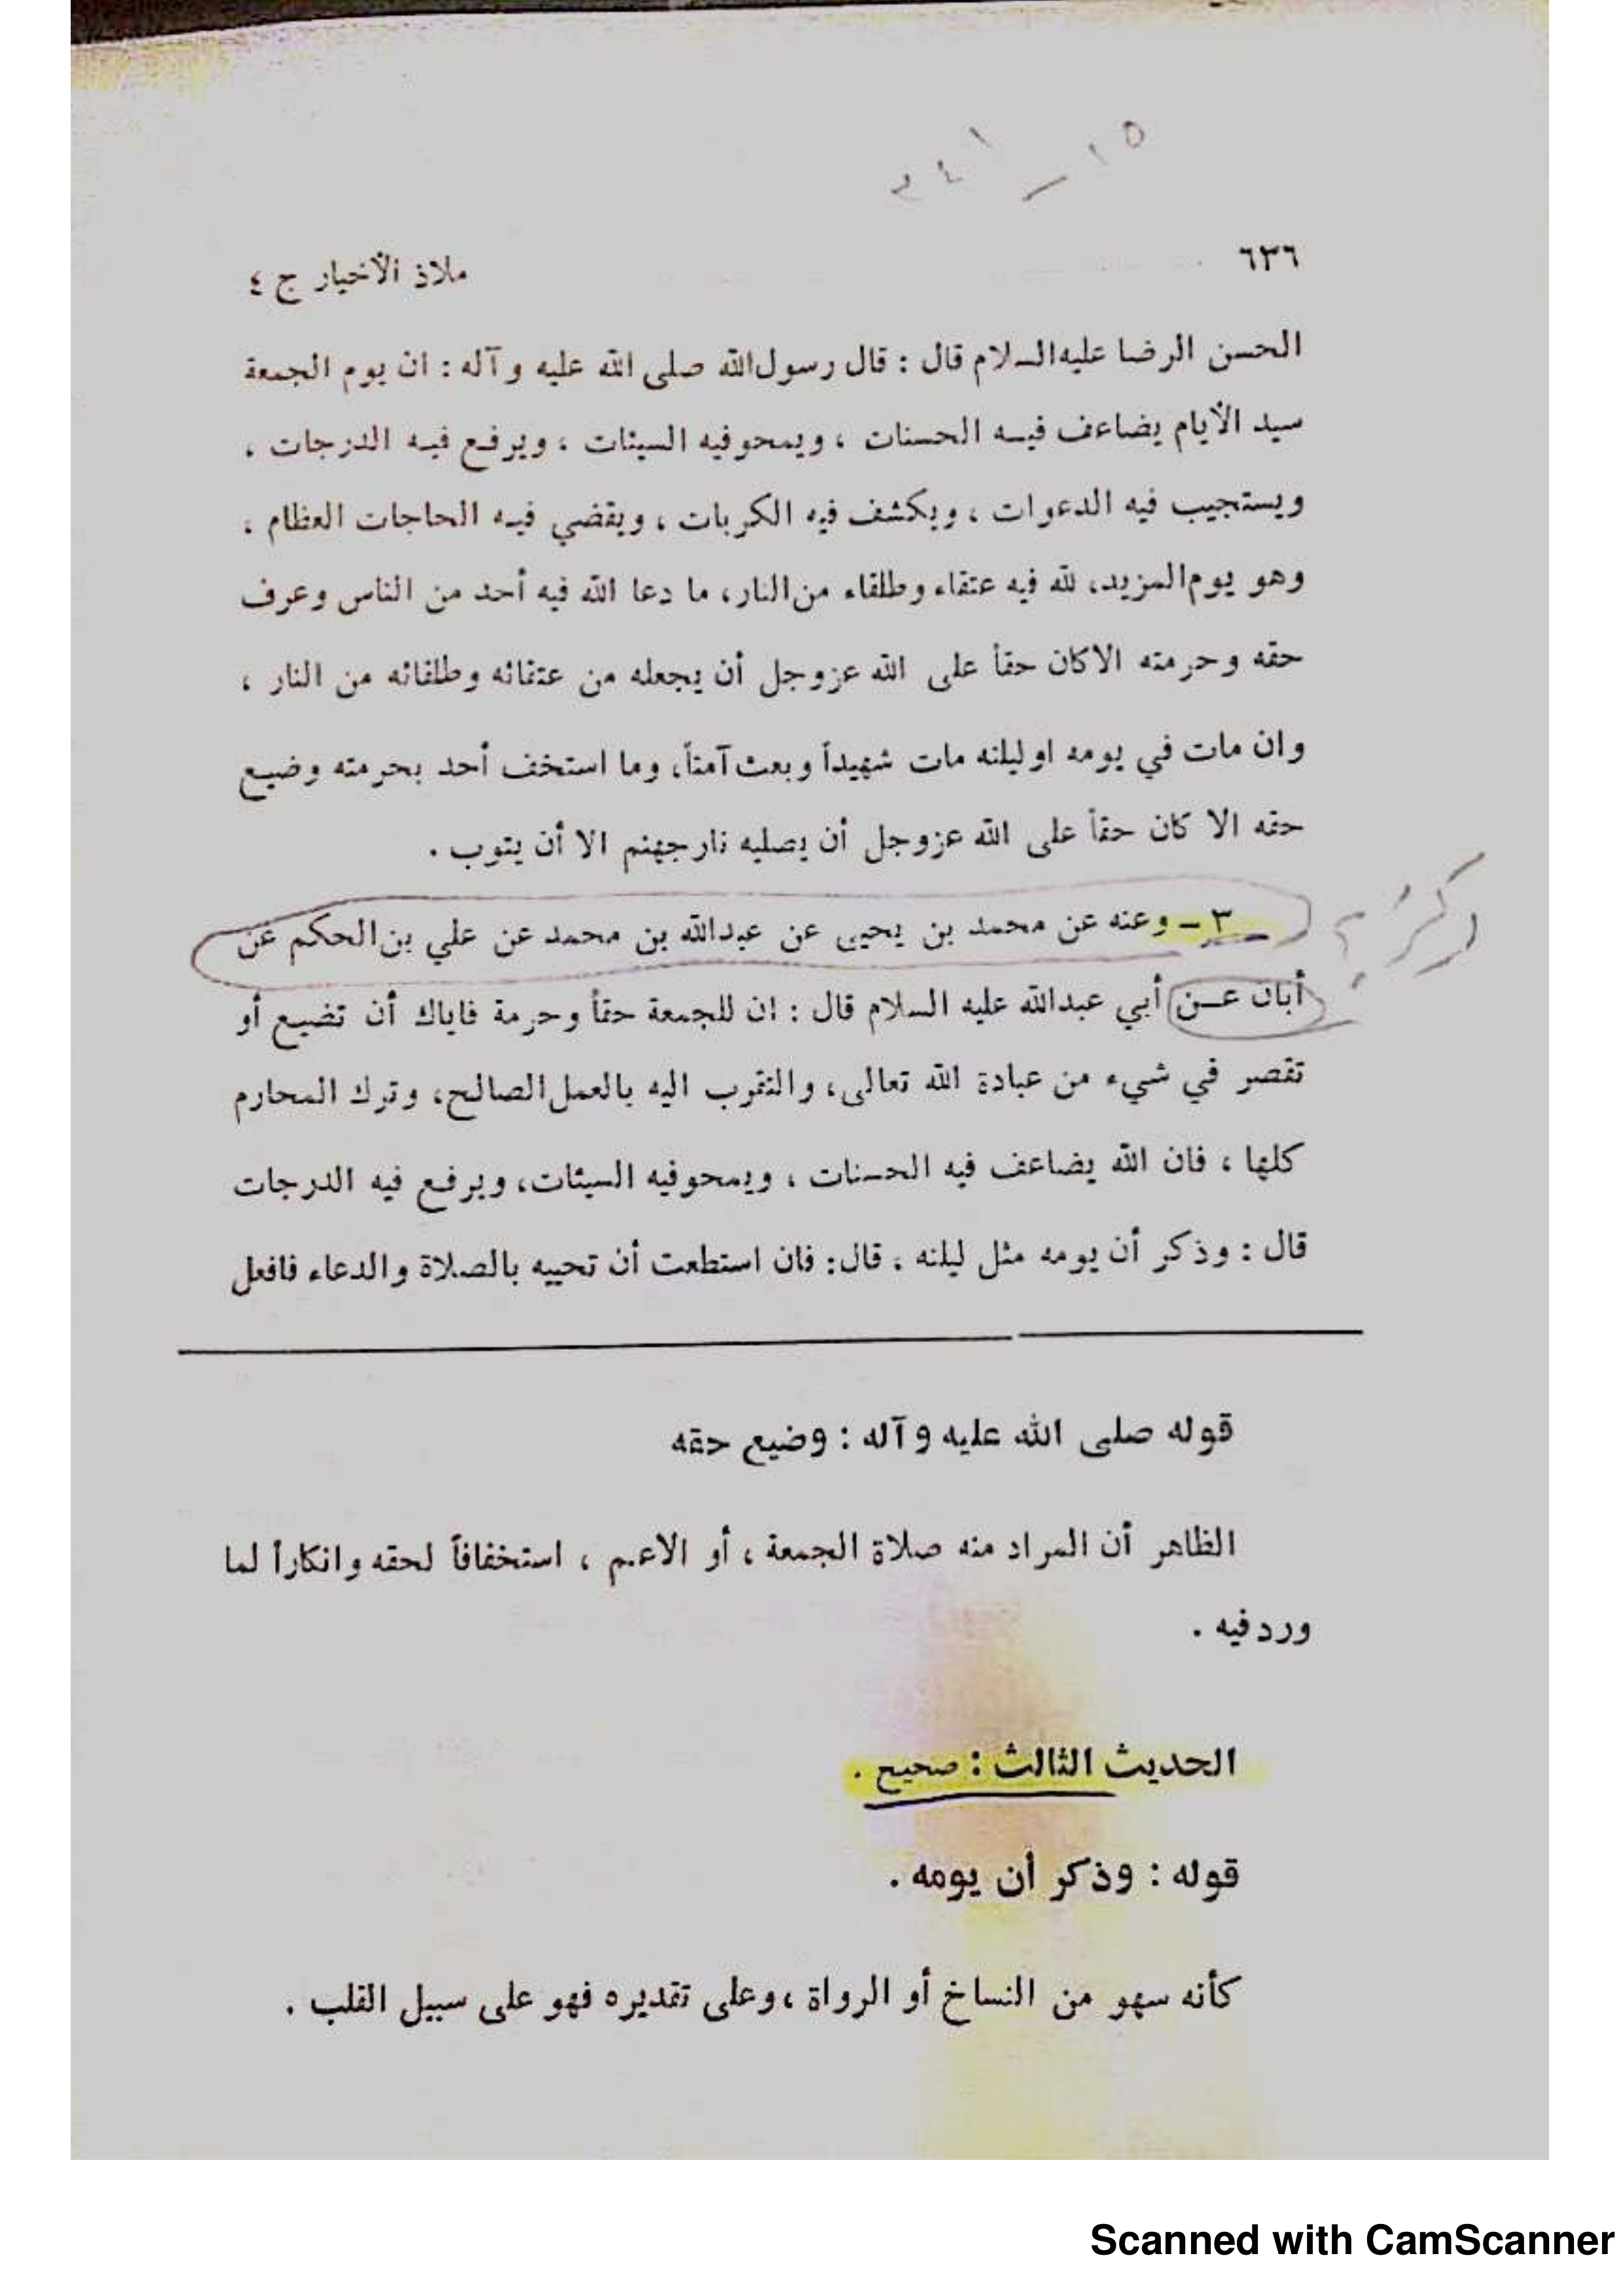 ٦٣٦
ملاذ الأخيار ج ٤
الحسن الرضا عليه السلام قال : قال رسول الله صلى الله عليه وآله : ان يوم الجمعة
سيد الأيام يضاعف فيه الحسنات ، ويمحو فيه السيئات ، ويرفع فيه الدرجات ،
ويستجيب فيه الدعوات ، ويكشف فيه الكربات ، ويقضي فيه الحاجات العظام ،
وهو يوم المزيد، لله فيه عتقاء وطلقاء من النار، ما دعا الله فيه أحد من الناس وعرف
حقه وحرمته الا كان حقاً على الله عزوجل أن يجعله من عتقائه وطلقائه من النار ،
وان مات في يومه او ليلته مات شهيداً وبعث آمناً، وما استخف أحد بحرمته وضيع
حقه الا كان حقاً على الله عزوجل أن يصليه نار جهنم الا أن يتوب .
٣ - وعنه عن محمد بن يحيى عن عبدالله بن محمد عن علي بن الحكم عن
أبان عن أبي عبدالله عليه السلام قال : ان للجمعة حقاً وحرمة فاياك أن تضيع أو
تقصر في شيء من عبادة الله تعالى، والتقرب اليه بالعمل الصالح، وترك المحارم
كلها ، فان الله يضاعف فيه الحسنات ، ويمحو فيه السيئات، ويرفع فيه الدرجات
قال : وذكر أن يومه مثل ليلته ، قال: فان استطعت أن تحييه بالصلاة والدعاء فافعل
قوله صلى الله عليه وآله : وضيع حقه
الظاهر أن المراد منه صلاة الجمعة ، أو الاعم ، استخفافاً لحقه وانكاراً لما
ورد فيه .
الحديث الثالث : صحيح .
قوله : وذكر أن يومه .
كأنه سهو من النساخ أو الرواة ، وعلى تقديره فهو على سبيل القلب .
Scanned with CamScanner